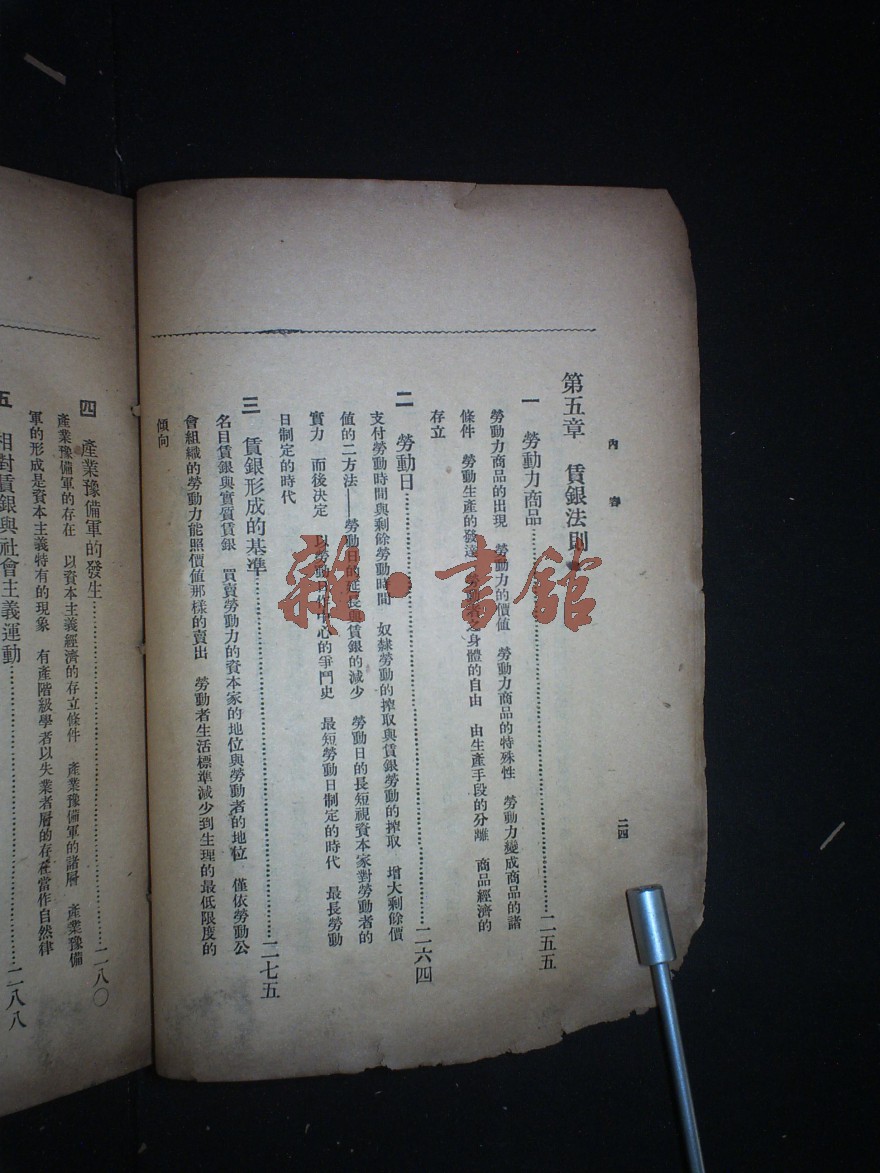 內容
二四
第五章 賃銀法則
一 勞動力商品……二五五
勞動力商品的出現 勞動力的價値 勞動力商品的特殊性 勞動力變成商品的諸
條件 勞動生產的發達 身體的自由 由生產手段的分離 商品經濟的
存立
二 勞動日……二六四
支付勞動時間與剩餘勞動時間 奴隸勞動的搾取與賃銀勞動的搾取 增大剩餘價
値的二方法——勞動日的延長與賃銀的減少 勞動日的長短視資本家對勞動者的
實力 而後決定 以勞動日作中心的爭鬥史 最短勞動日制定的時代 最長勞動
日制定的時代
三 賃銀形成的基準……二七五
名目賃銀與實質賃銀 買賣勞動力的資本家的地位與勞動者的地位 僅依勞動公
會組織的勞動力能照價値那樣的賣出 勞動者生活標準減少到生理的最低限度的
傾向
四 產業豫備軍的發生……二八〇
產業豫備軍的存在 以資本主義經濟的存立條件 產業豫備軍的諸層 產業豫備
軍的形成是資本主義特有的現象 有產階級學者以失業者層的存在當作自然律
五 相對賃銀與社會主義運動……二八八
雜·書館